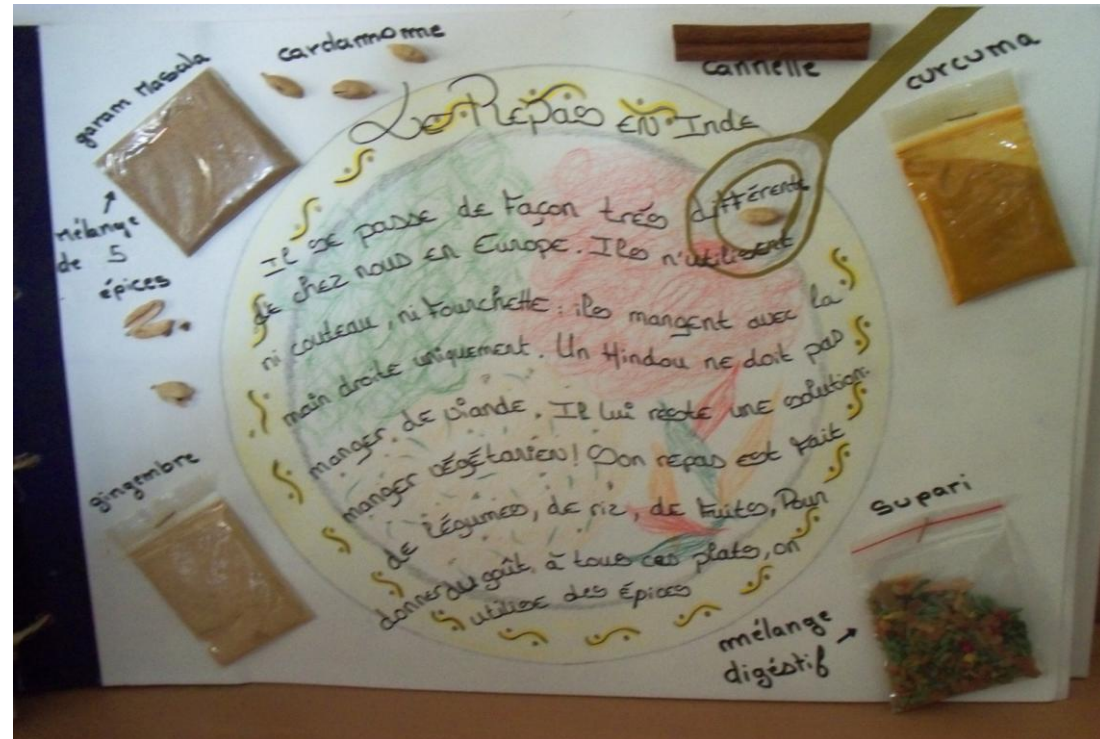 cardamome
garam Masala
mélange
de 5
épices
cannelle
curcuma
Le Repas en Inde
Il se passe de façon trés différente
de chez nous en Europe. Iles n'utilisent
ni couteau, ni fourchette : iles mangent avec la
main droite uniquement. Un Hindou ne doit pas
manger de viande. Il lui reste une solution:
manger végétarien! Son repas est fait
de légumes, de riz, de fuits, Pour
donner du goût, à tous ces plats, on
utilise des épices
gingembre
supari
mélange
digéstif